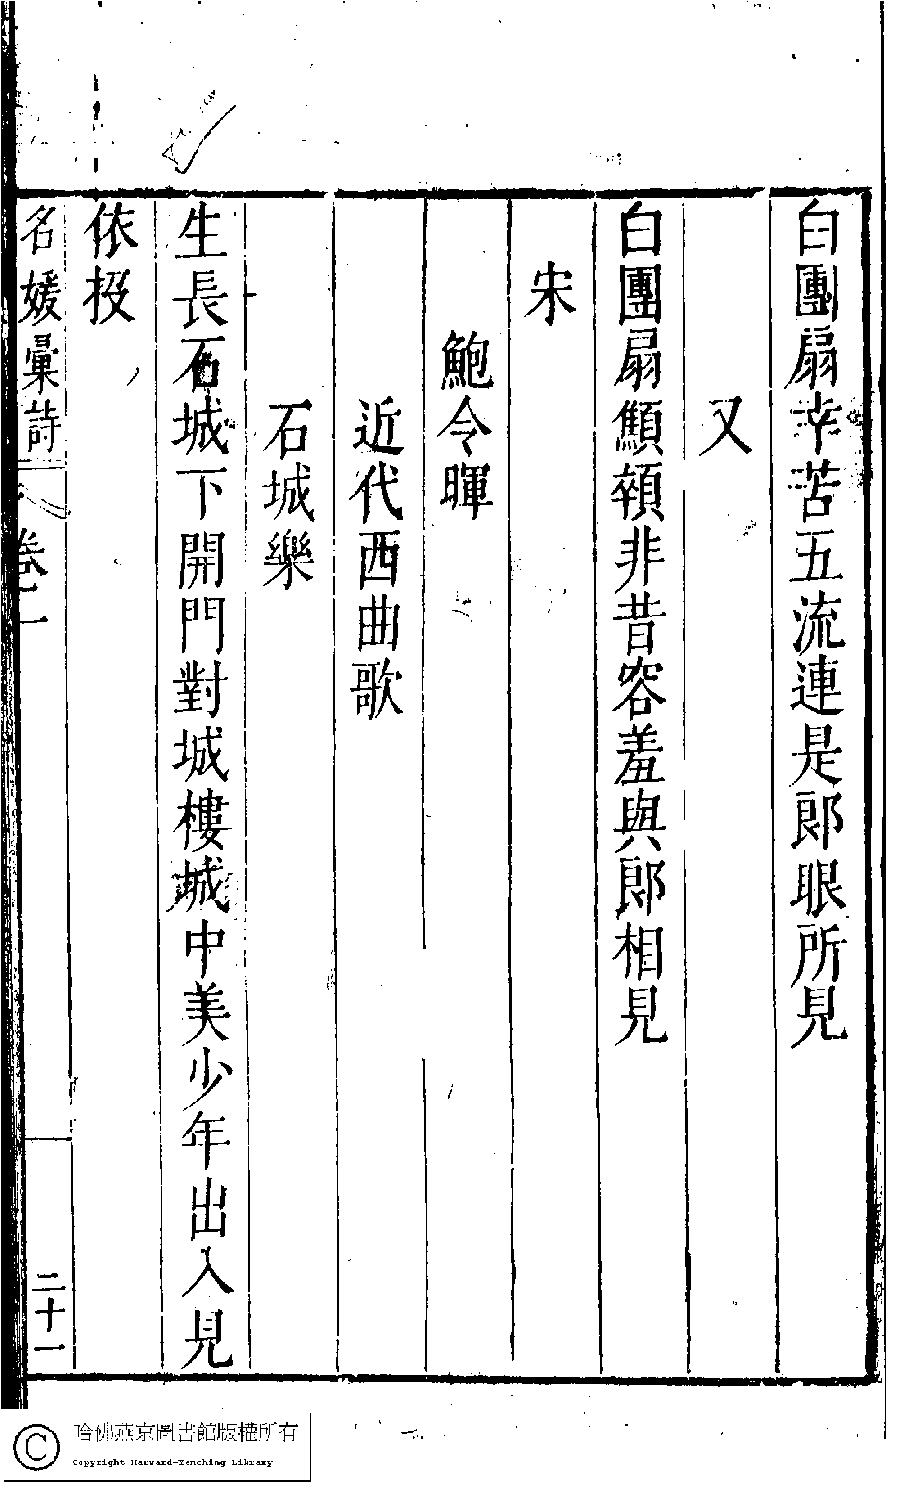 白團扇辛苦五流連是郎眼所見
又
白團扇顦顇非昔容羞與郎相見
宋
鮑令暉
近代西曲歌
石城樂
生長石城下開門對城樓城中美少年出入見
依投
名媛彙詩 卷一 二十一
哈佛燕京圖書館版權所有
Copyright Harvard-Yenching Library